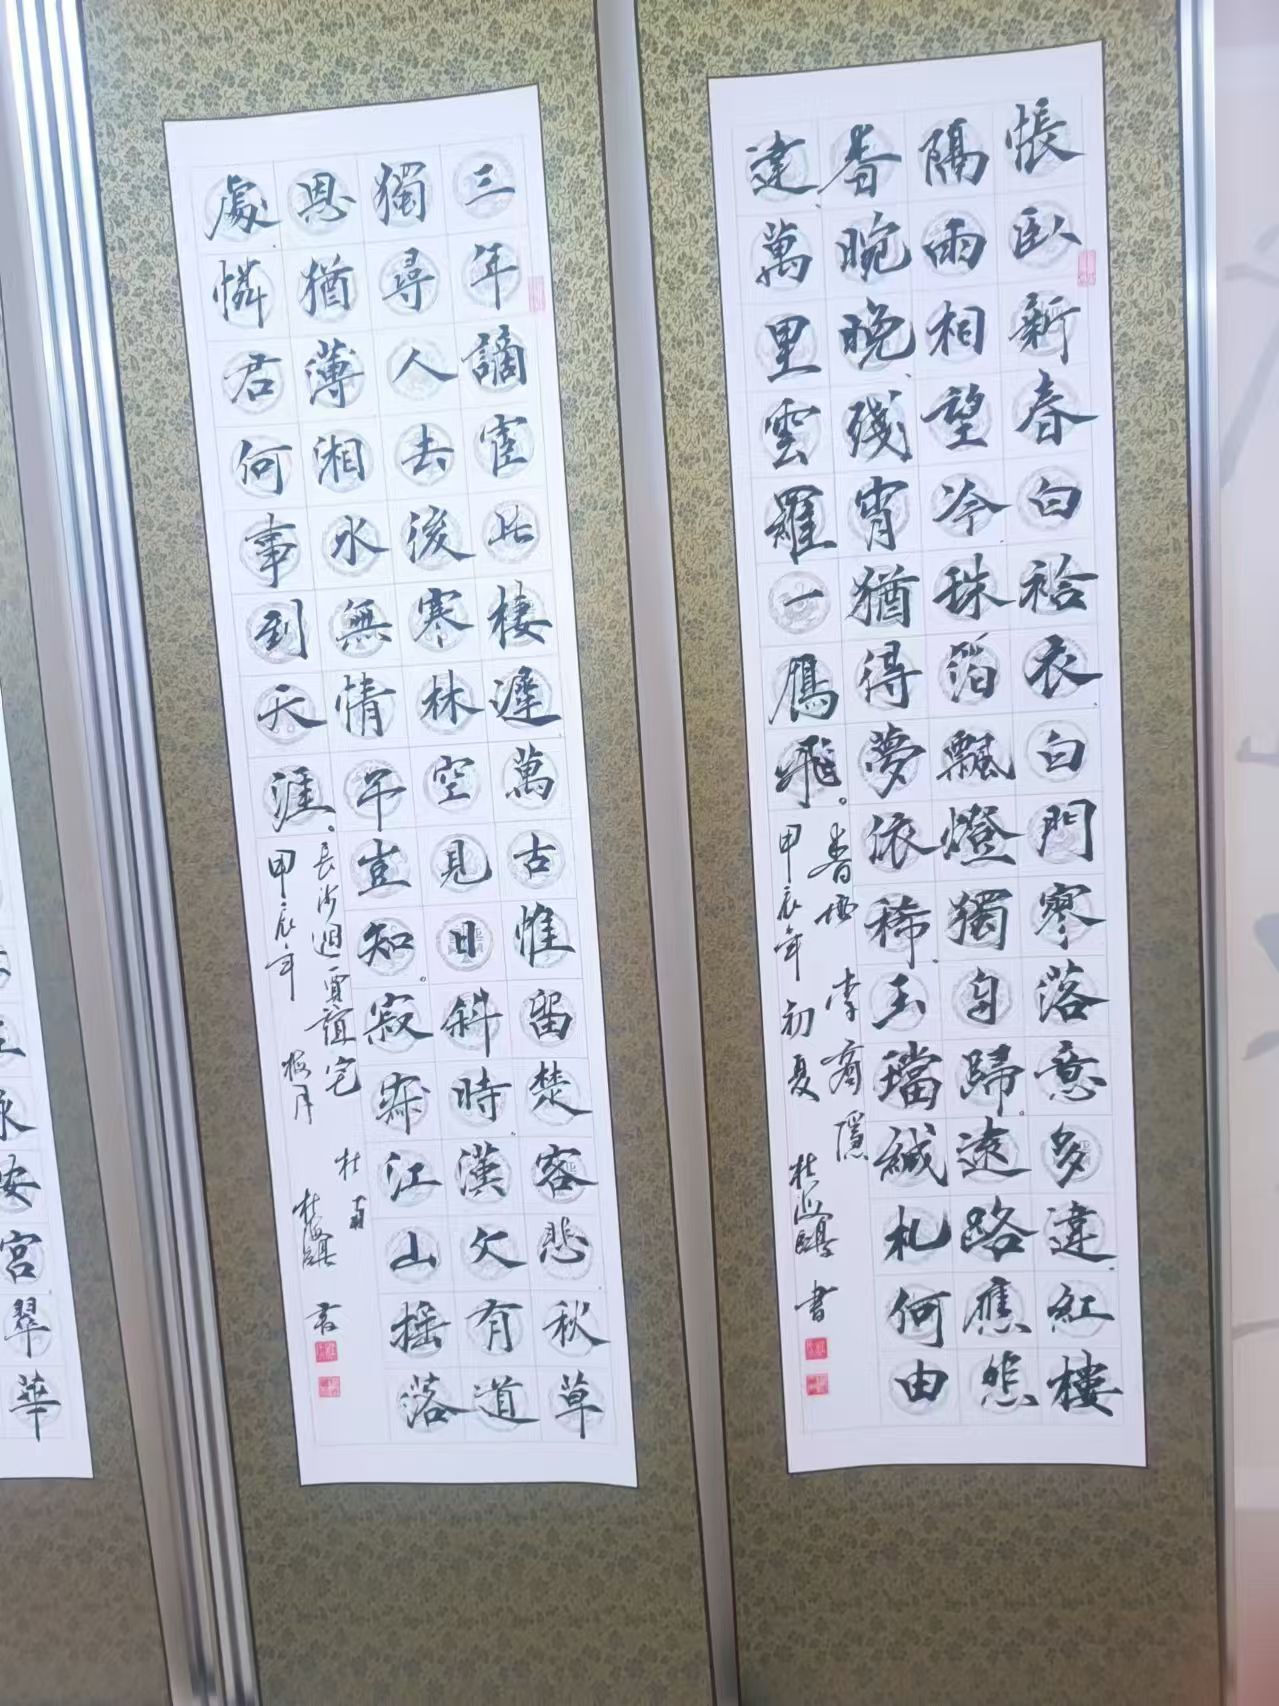 悵臥新春白袷衣白門寥落意多違紅樓
隔雨相望冷珠箔飄燈獨自歸遠路應悲
春晼晚殘宵猶得夢依稀玉璫緘札何由
達萬里雲羅一鴈飛。
春雨 李商隱
甲辰年初夏 杜海 書
三年謫宦此棲遲萬古惟留楚客悲秋草
獨尋人去後寒林空見日斜時漢文有道
恩猶薄湘水無情弔豈知。寂寂江山搖落
處憐君何事到天涯。
長沙過賈誼宅 杜甫
甲辰年 梅月 杜海 書
安宮翠華